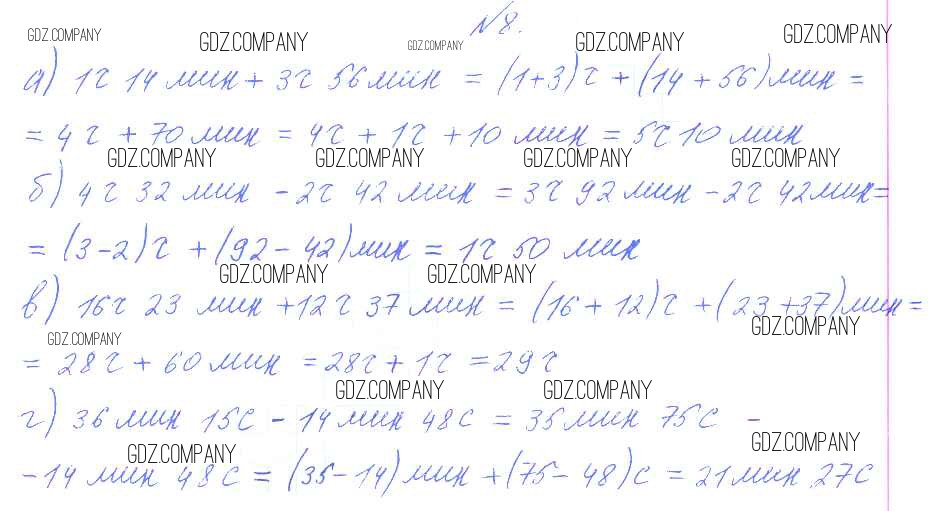 №8.
GDZ.COMPANY GDZ.COMPANY GDZ.COMPANY GDZ.COMPANY GDZ.COMPANY
а) 1ч 14 мин + 3ч 56 мин = (1+3)ч + (14 + 56) мин =
= 4ч + 70 мин = 4ч + 1ч + 10 мин = 5ч 10 мин
GDZ.COMPANY GDZ.COMPANY GDZ.COMPANY GDZ.COMPANY
б) 4ч 32 мин - 2ч 42 мин = 3ч 92 мин - 2ч 42 мин =
= (3-2)ч + (92 - 42) мин = 1ч 50 мин
GDZ.COMPANY GDZ.COMPANY
в) 16ч 23 мин + 12ч 37 мин = (16 + 12)ч + (23 + 37) мин =
GDZ.COMPANY GDZ.COMPANY
= 28ч + 60 мин = 28ч + 1ч = 29ч
GDZ.COMPANY GDZ.COMPANY
г) 36 мин 15с - 14 мин 48с = 35 мин 75с -
GDZ.COMPANY GDZ.COMPANY
- 14 мин 48с = (35-14) мин + (75 - 48)с = 21 мин 27с